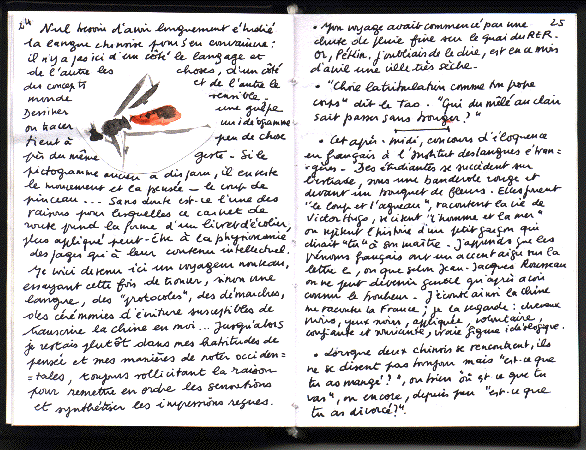 24
Nul besoin d'avoir longuement étudié
la langue chinoise pour s'en convaincre :
il n'y a pas ici d'un côté le langage et
de l'autre les choses, d'un côté
des concepts et de l'autre le
monde sensible.
Dessiner une guêpe
ou tracer un idéogramme
tient à peu de chose
près du même geste. Si le
pictogramme ancien a disparu, il en reste
le mouvement et la pensée — le coup de
pinceau... Sans doute est-ce l'une des
raisons pour lesquelles ce carnet de
route prend la forme d'un livret d'écolier,
plus appliqué peut-être à la physionomie
des pages qu'à leur contenu intellectuel.
Me voici devenu ici un voyageur nouveau,
essayant cette fois de trouver, sinon une
langue, des "protocoles", des démarches,
des cérémonies d'écriture susceptibles de
transcrire la Chine en moi... Jusqu'alors
je restais plutôt dans mes habitudes de
pensée et mes manières de noter occiden=
=tales, toujours sollicitant la raison
pour remettre en ordre les sensations
et synthétiser les impressions reçues.
25
• Mon voyage avait commencé par une
chute de pluie fine sur le quai du RER.
Or, Pékin, j'oubliais de le dire, est en ce mois
d'avril une ville très sèche.
• "Choie la tribulation comme ton propre
corps" dit le Tao. "Qui du mêlé au clair
sait passer sans bouger ?"
• Cet après-midi, concours d'éloquence
en français à l'Institut des langues étran=
=gères. Des étudiantes se succèdent sur
l'estrade, sous une banderole rouge et
devant un bouquet de fleurs. Elles jouent
"le loup et l'agneau", racontent la vie de
Victor Hugo, récitent "l'homme et la mer"
ou répètent l'histoire d'un petit garçon qui
disait "tu" à son maître. J'apprends que les
prénoms français ont un accent aigu sur la
lettre e, ou que selon Jean-Jacques Rousseau
on ne peut devenir sensé qu'après avoir
connu le bonheur. J'écoute ainsi la Chine
me raconter la France ; je la regarde : cheveux
noirs, yeux noirs, appliquée, volontaire,
confiante et souriante, vraie figure idéologique.
• Lorsque deux chinois se rencontrent, ils
ne se disent pas bonjour mais "est-ce que
tu as mangé ?", ou bien "où est-ce que tu
vas", ou encore, depuis peu "est-ce que
tu as divorcé ?".